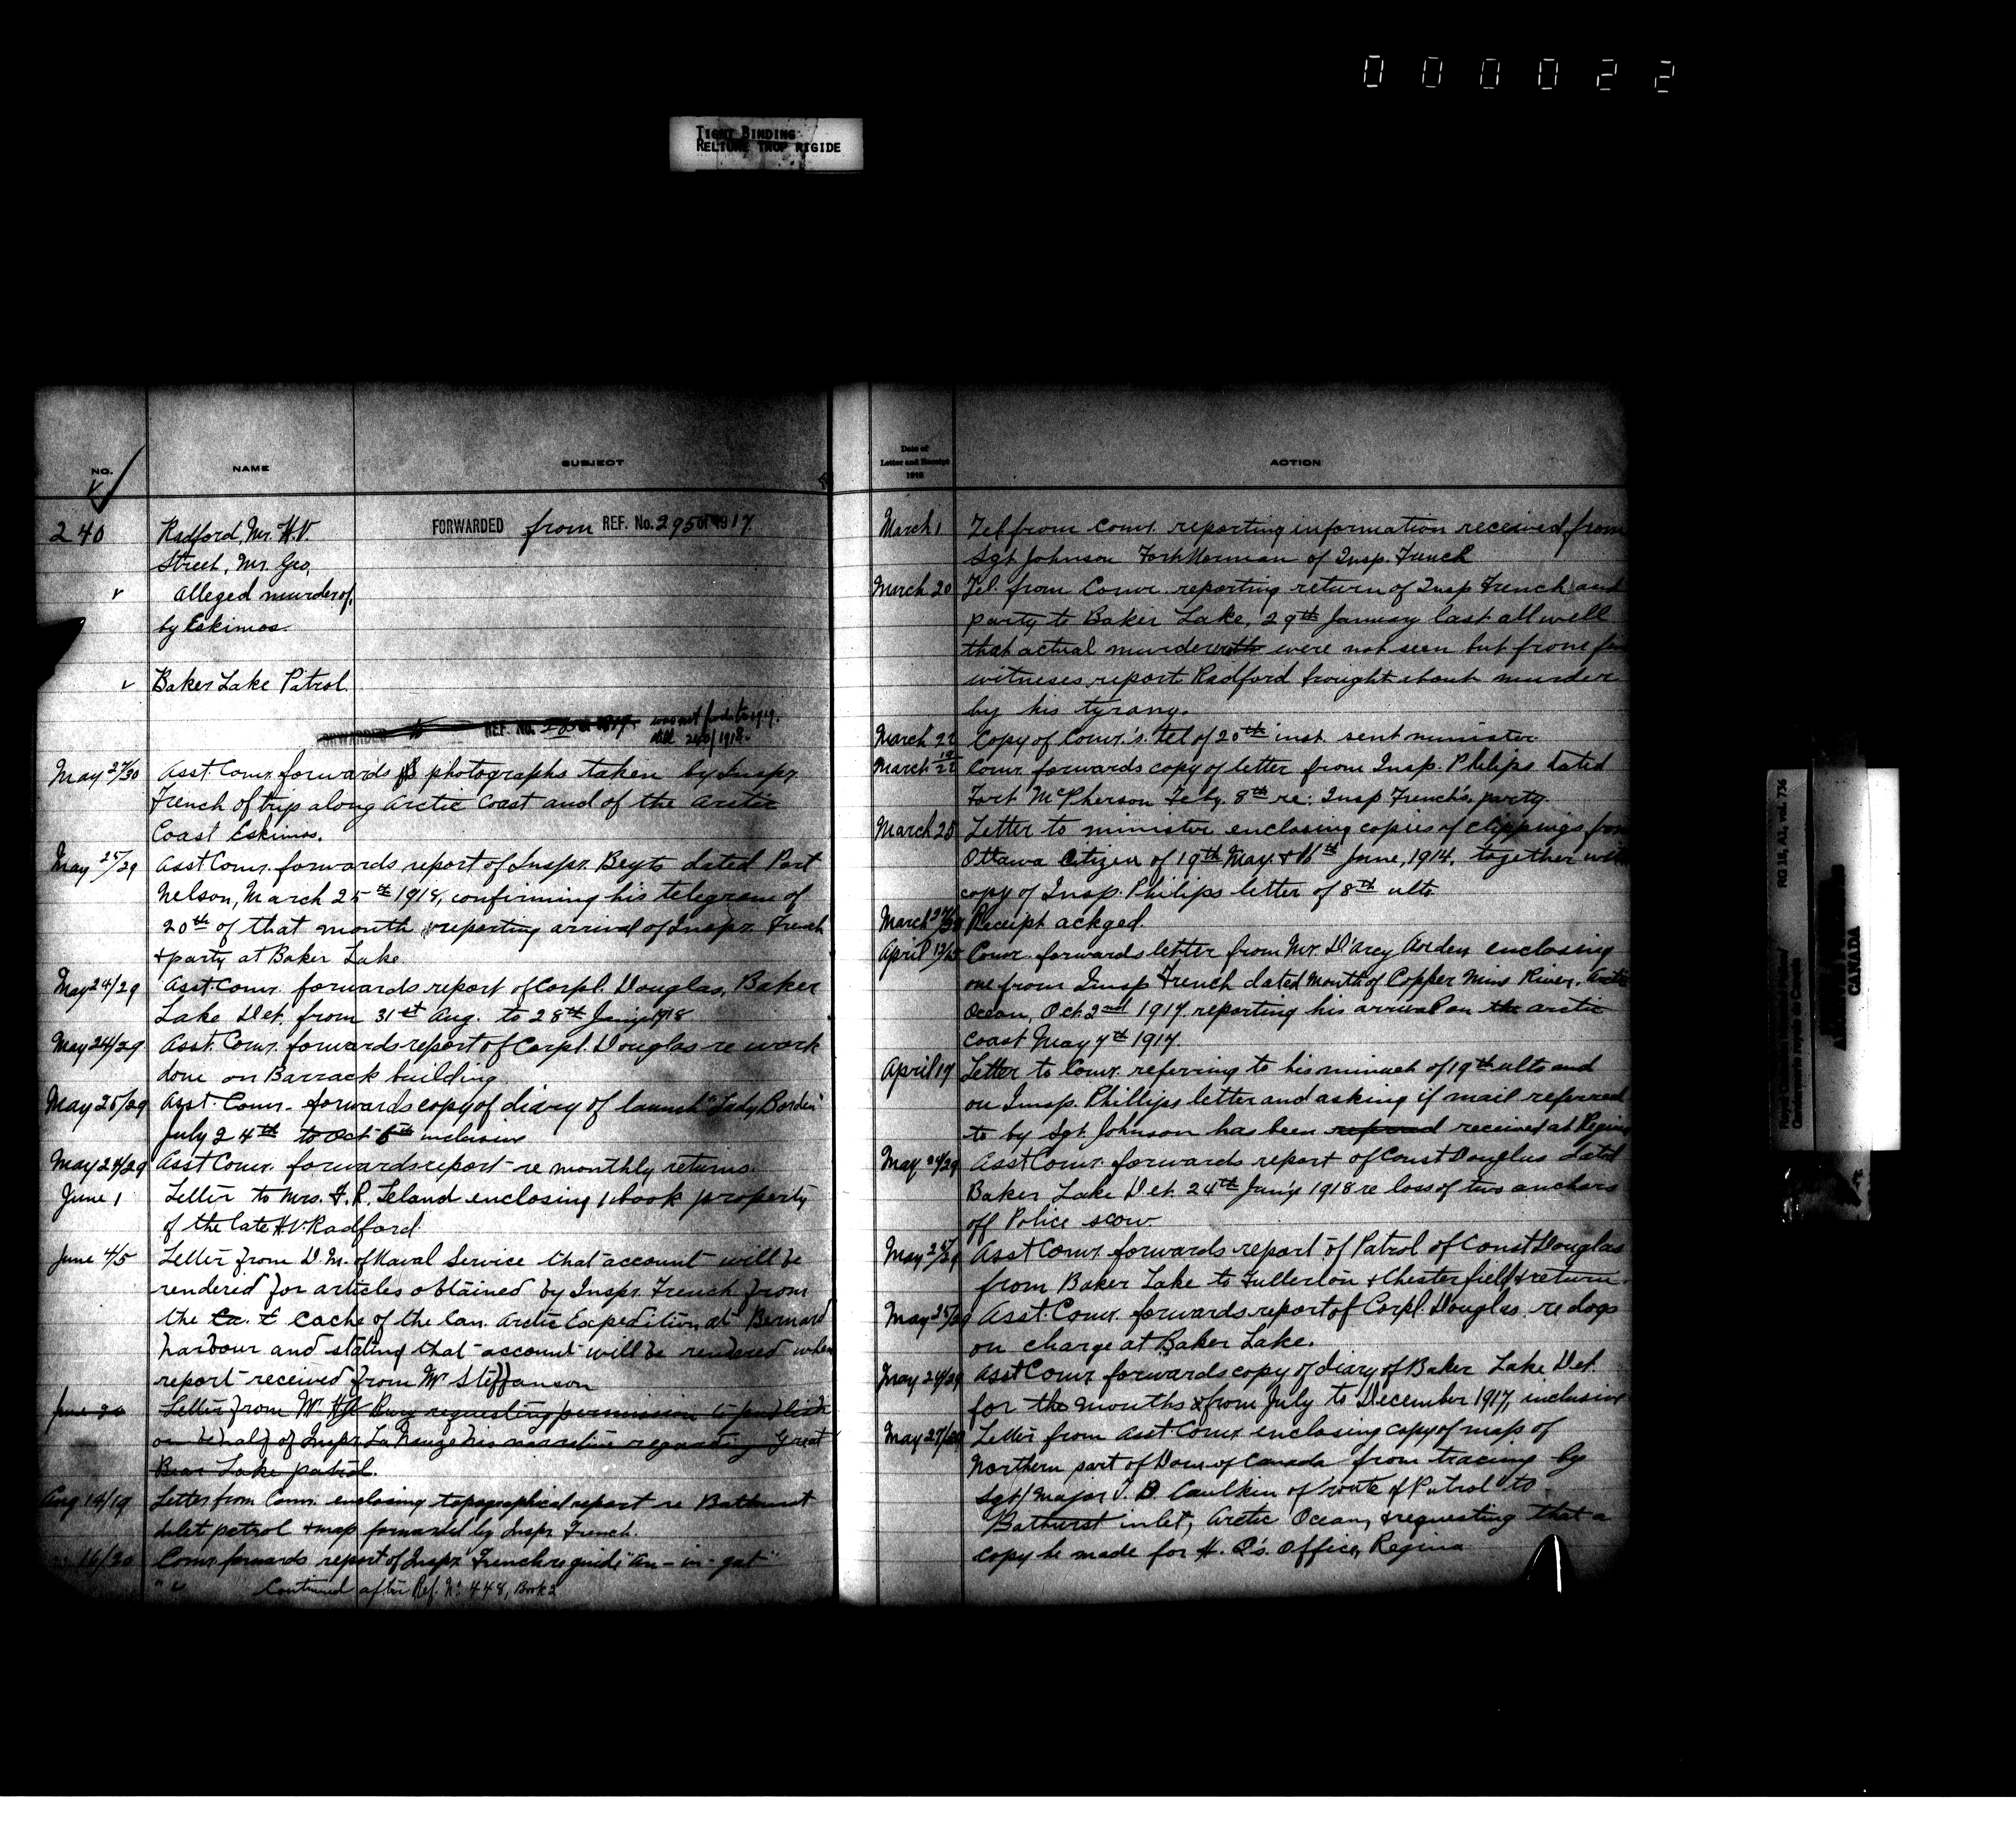 000022
TIGHT BINDING
RELIURE TROP RIGIDE
NO.
NAME
SUBJECT
240
Radford, Mr. H.V.
FORWARDED from REF. No. 295 OF 1917
Street, Mr. Geo,
Alleged murder of,
by Eskimos.
Baker Lake Patrol.
FORWARDED to REF. NO. 1919. was not fwded to 1919.
till 240/1918.
May 27/30 Asst. Comr. forwards photographs taken by Inspr.
French of trip along Arctic Coast and of the Arctic
Coast Eskimos.
May 25/29 Asst Comr. forwards report of Inspr. Beyts dated Port
Nelson, March 25th 1918, confirming his telegram of
20th of that month reporting arrival of Inspr. French
+ party at Baker Lake
May 24/29 Asst. Comr. forwards report of Corpl. Douglas, Baker
Lake Det. from 31st Aug. to 28th Jany 1918
May 24/29 Asst. Comr. forwards report of Corpl. Douglas re work
done on Barrack building
May 25/29 Asst. Comr. forwards copy of diary of launch "Lady Borden"
July 24th to Oct 6th inclusive
May 24/29 Asst Comr. forwards report re monthly returns.
June 1 Letter to Mrs. F. R. Leland enclosing 1 book property
of the late H.V. Radford.
June 4/5 Letter from D M. of Naval Service that account will be
rendered for articles obtained by Inspr. French from
the Ca. E cache of the Can. Arctic Expedition at Bernard
harbour and stating that account will be rendered when
report received from Mr Steffanson
June Letter from Mr requesting permission to publish
on behalf of Inspr La Nauze his narrative regarding Great
Bear Lake patrol.
Aug 14/19 Letter from Comr. enclosing topographical report re Bathurst
Inlet patrol + map forwarded by Inspr French.
16/20 Comr forwards report of Inspr French re guide "An-in-gat"
" " Continued after Ref. No. 448, Book 2
Date of
Letter and Receipt
1918
ACTION
March 1 Tel from Comr. reporting information received from
Sgt Johnson Fort Norman of Insp. French
March 20 Tel. from Comr. reporting return of Insp French and
party to Baker Lake, 29th January last all well
that actual murderers were not seen but from
witneses report Radford brought about murder
by his tyrany.
March 22 Copy of Comr.'s. tel of 20th inst. sent minister
March 19/22 Comr forwards copy of letter from Insp. Philips dated
Fort McPherson Feby. 8th re: Insp French's party.
March 25 Letter to minister enclosing copies of clippings from
Ottawa Citizen of 19th May + 16th June, 1914, together with
copy of Insp. Philips letter of 8th ulto
March Receipt ackged.
April 12/15 Comr. forwards letter from Mr. D'Arcy Arden enclosing
one from Insp French dated Mouth of Copper Mine River, Arctic
Ocean, Oct. 2nd 1917 reporting his arrival on the arctic
coast May 7th 1917.
April 17 Letter to Comr. referring to his minute of 19th ulto and
on Insp. Phillips letter and asking if mail referred
to by Sgt. Johnson has been received at Regina
May 24/29 Asst Comr. forwards report of Const Douglas dated
Baker Lake Det. 24th Jan'y 1918 re loss of two anchors
off Police scow.
May 25/29 Asst Comr. forwards report of Patrol of Const Douglas
from Baker Lake to Fullerton + Chesterfield + return
May 25/29 Asst. Comr. forwards report of Corpl. Douglas re dogs
on charge at Baker Lake.
May 24/29 Asst Comr forwards copy of diary of Baker Lake Det.
for the months from July to December 1917, inclusive
May 27/29 Letter from Asst Comr enclosing copy of map of
Northern part of Dom. of Canada from tracing by
Sgt/Major T. B. Caulkin of route of Patrol to
Bathurst inlet, Arctic Ocean, + requesting that a
copy be made for H. Q's. Office, Regina
RG 18, A1, vol. 736
Royal Canadian Mounted Police/
Gendarmerie royale du Canada
CANADA